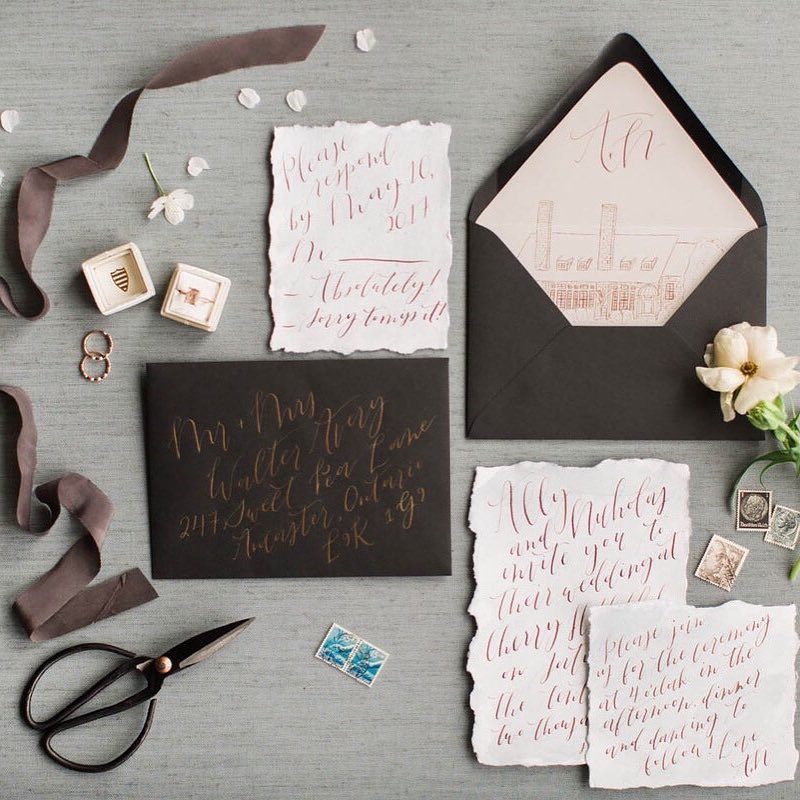 Please
respond
by May 10,
2017
M
- Absolutely!
- Sorry to miss it!
A.N
Mr + Mrs
Walter Avery
247 Sweet Pea Lane
Ancaster, Ontario
L9K 1G9
Ally
and Nicholas
invite you to
their wedding at
Cherry
on
the
two thousand
Please join
us for the ceremony
at 4 o'clock in the
afternoon. dinner
and dancing to
follow! Love
A.N